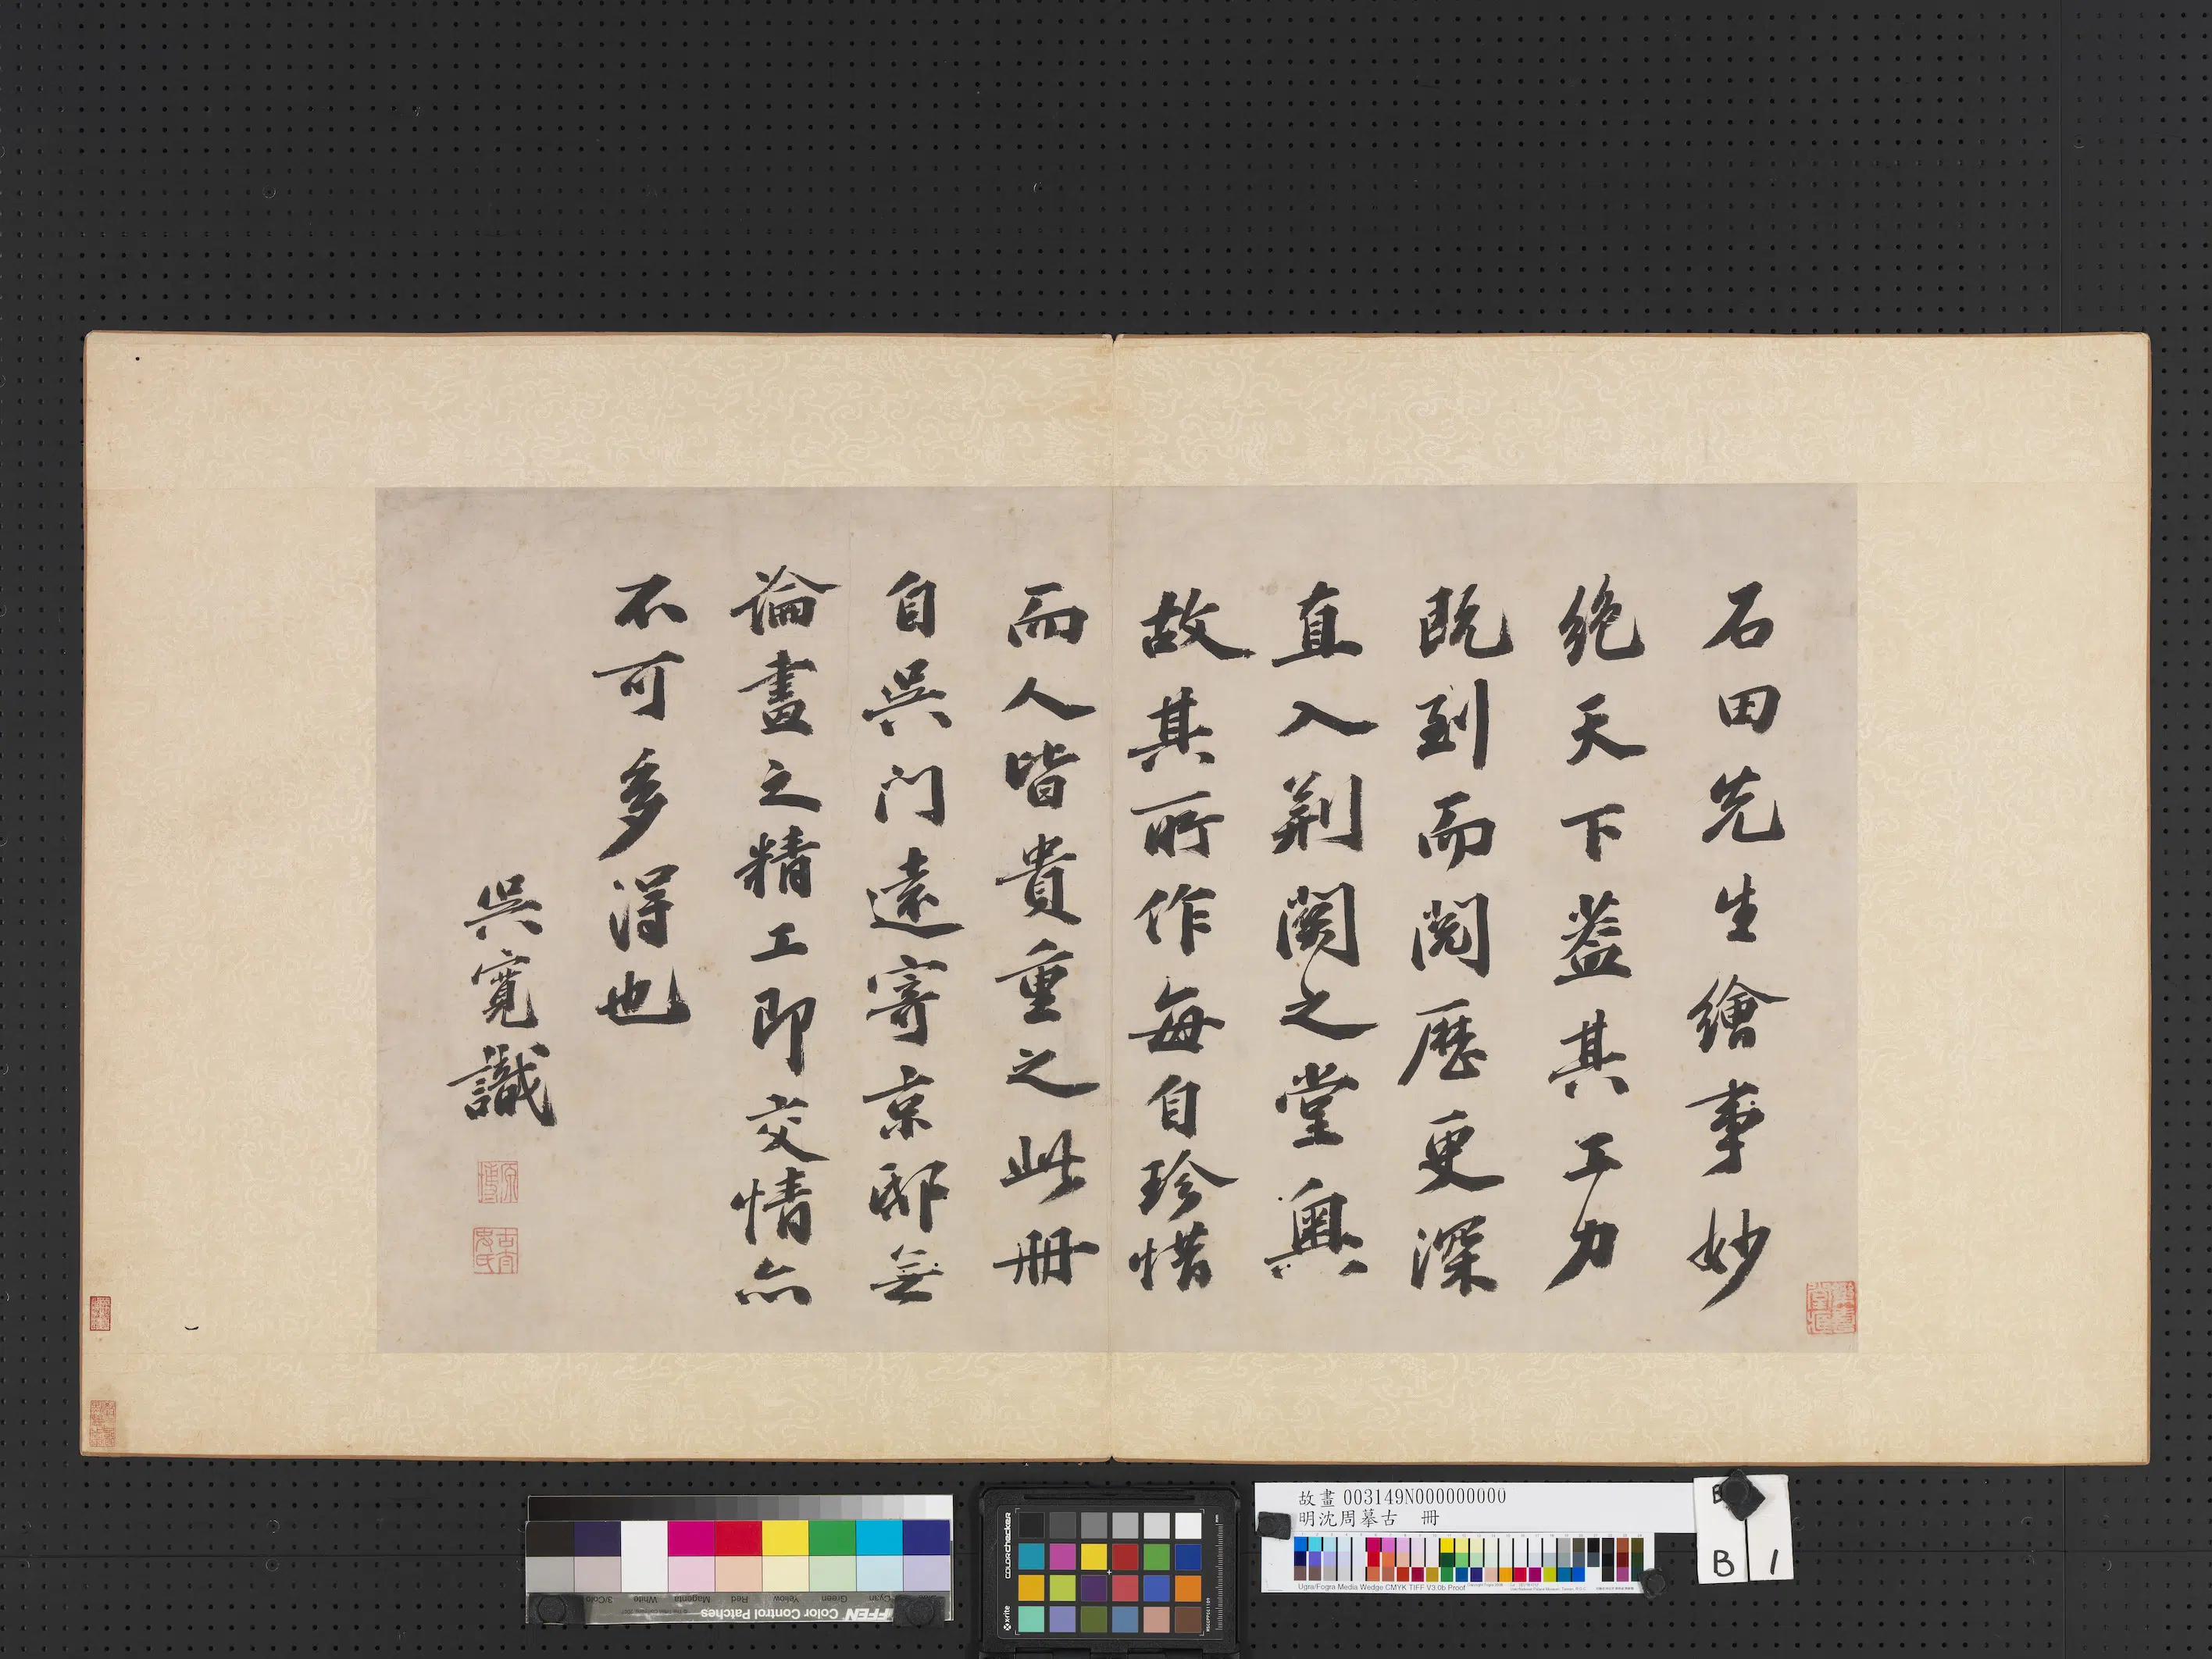 石田先生繪事妙
絶天下蓋其工力
既到而閱歷更深
直入荆關之堂奧
故其所作每自珍惜
而人皆貴重之此冊
自吳门遠寄京邸無
論畫之精工即交情亦
不可多得也
吳寬識
原博
故畫 003149N000000000
明沈周摹古 冊
B 1
colorchecker
x-rite
Ugra/Fogra Media Wedge CMYK TIFF V3.0b Proof
Color Control Patches
3/Color White Magenta Red Yellow Green Cyan